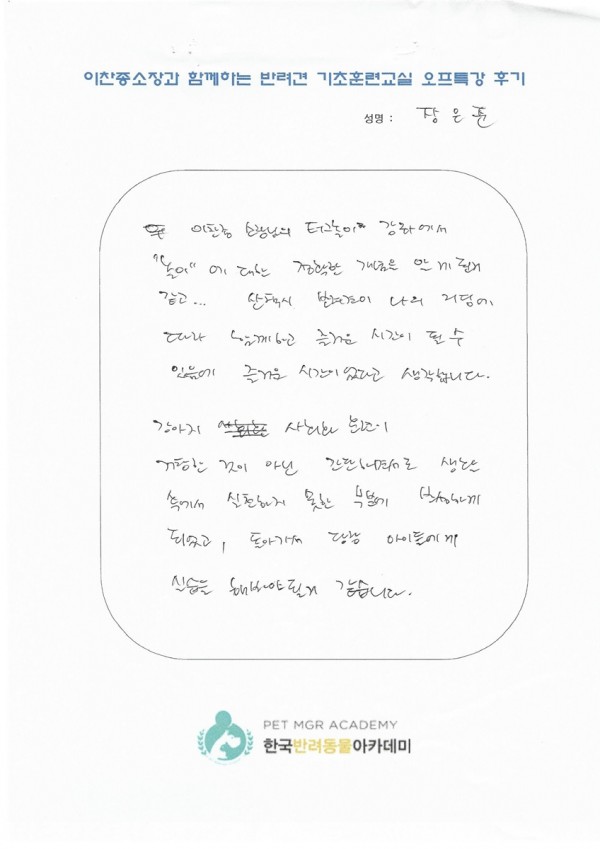 이찬종소장과 함께하는 반려견 기초훈련교실 오프특강 후기
성명 : 장은훈
이찬종 소장님의 터그놀이 강좌에서
"놀이"에 대한 정확한 개념을 알게 된거
같고... 산책시 반려견이 나의 리딩에
따라 즐거운 시간이 될 수
있음에 즐거운 시간이었다고 생각합니다.
강아지 사회화 분야가
거창한 것이 아닌 간단하면서도 생활
속에서 실천하지 못한 부분에 반성하게
되었고, 돌아가서 당장 아이들에게
실습을 해봐야 될거 같습니다.
PET MGR ACADEMY
한국반려동물아카데미